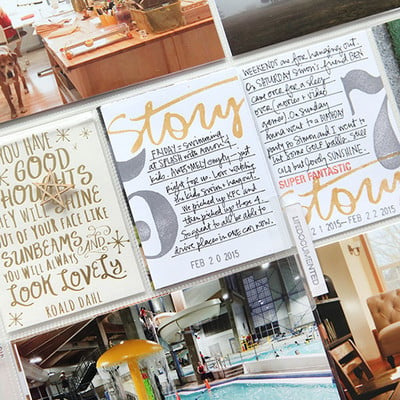 YOU HAVE
GOOD
THOUGHTS
THEY WILL SHINE
OUT OF YOUR FACE LIKE
SUNBEAMS AND
YOU WILL ALWAYS
LOOK LOVELY
ROALD DAHL
Story
FRIDAY = swimming
at SPLASH with Aaron's
kids. AWESOMELY empty - just
right for us. Love watching
the kids swim & hang out.
We picked up KFC and
then picked up these
great to all be able to
drive places in one car now.
FEB 20 2015
WEEKENDS are for hanging out.
On SATURDAY Simon's friend BEN
came over for a sleep
over (movies + video
games). On Sunday
Anna went to a BIRTHDAY
party so Simon and I went to
hit some golf balls. Still
cold but lovely SUNSHINE.
SUPER FANTASTIC
Story
21 2015 – FEB 22 2015
LIFE DOCUMENTED